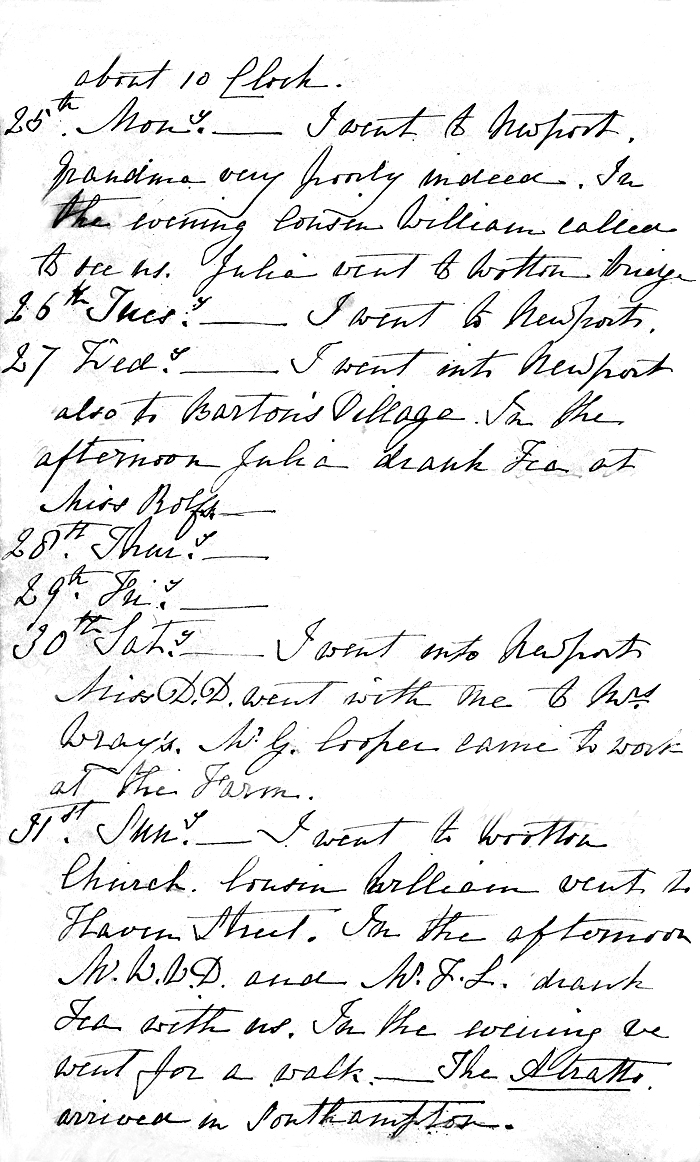 about 10 Clock.
25th. Mony. — I went to Newport.
Grandma very poorly indeed. In
the evening Cousin William called
to see us. Julia went to Wotton bridge
26th Tues.y — I went to Newport.
27 Wed.y — I went into Newport
also to Barton's Village. In the
afternoon Julia drank Tea at
Miss
28th. Thur.y —
29th. Fri.y —
30th Sat.y — I went into Newport
Miss D.D. went with me to Mrs
Wray's. Mr G. Cooper came to work
at the Farm.
31st. Sun.y — I went to Wootton
Church. Cousin William went to
Haven Street. In the afternoon
and Mr. F.L. drank
Tea with us. In the evening we
went for a walk. — The Atratto.
arrived in Southampton.